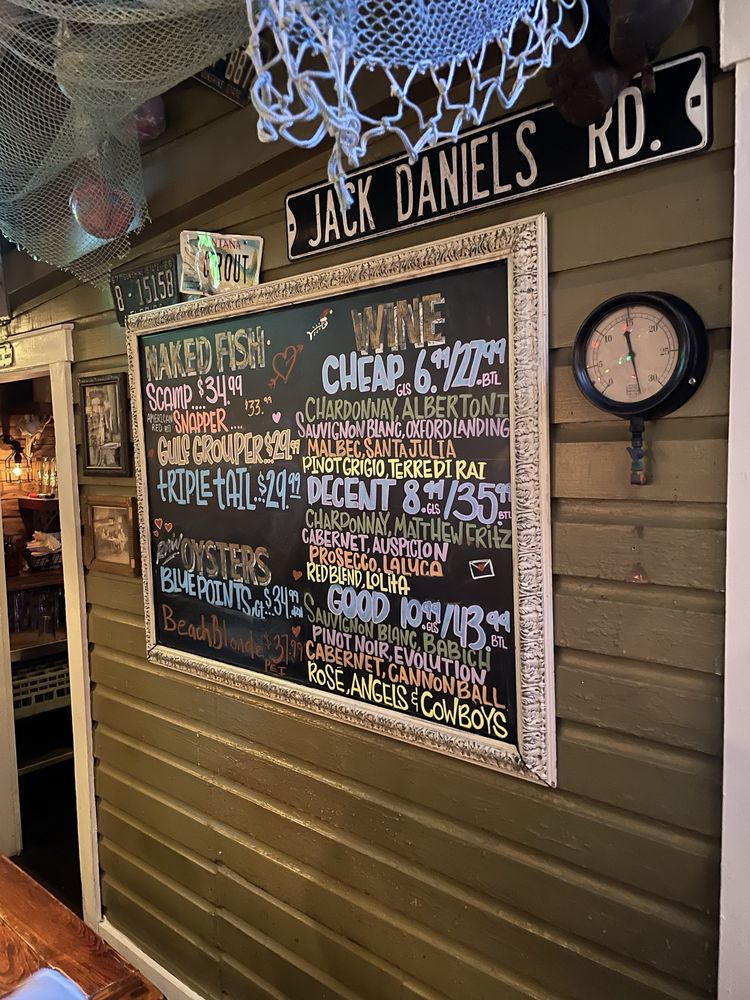 JACK DANIELS RD.
8-15158
NAKED FISH
SCAMP...$34.99
AMERICAN RED
SNAPPER....$33.99
GULF GROUPER $29.99
TRIPLE TAIL..$29.99
OYSTERS
BLUE POINTS, Ct. $34.99
BeachBlonde $37.99
WINE
CHEAP 6.99/27.99
GLS BTL
CHARDONNAY, ALBERTONI
SAUVIGNON BLANC, OXFORD LANDING
MALBEC, SANTA JULIA
PINOT GRIGIO, TERRE DI RAI
DECENT 8.99/35.99
GLS BTL
CHARDONNAY, MATTHEW FRITZ
CABERNET, AUSPICION
PROSECCO, LALUCA
RED BLEND, LOLITA
GOOD 10.99/43.99
GLS BTL
SAUVIGNON BLANC, BABICH
PINOT NOIR, EVOLUTION
CABERNET, CANNONBALL
ROSE, ANGELS & COWBOYS